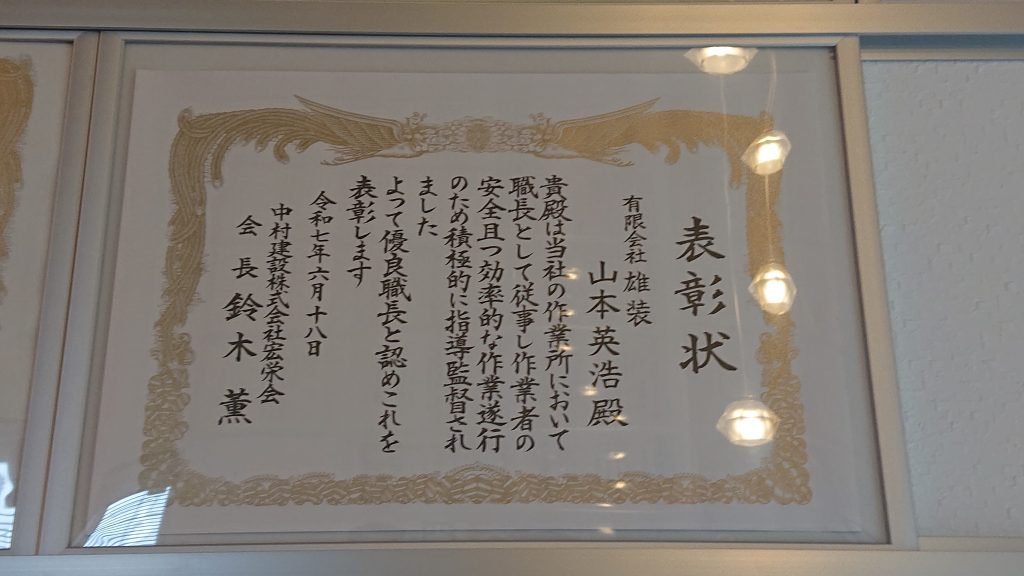 表彰状
有限会社 雄装
山本英浩殿
貴殿は当社の作業所において
職長として従事し作業者の
安全且つ効率的な作業遂行
のため積極的に指導監督され
ました
よって優良職長と認めこれを
表彰します
令和七年六月十八日
中村建設株式会社宏栄会
会長 鈴木 薫